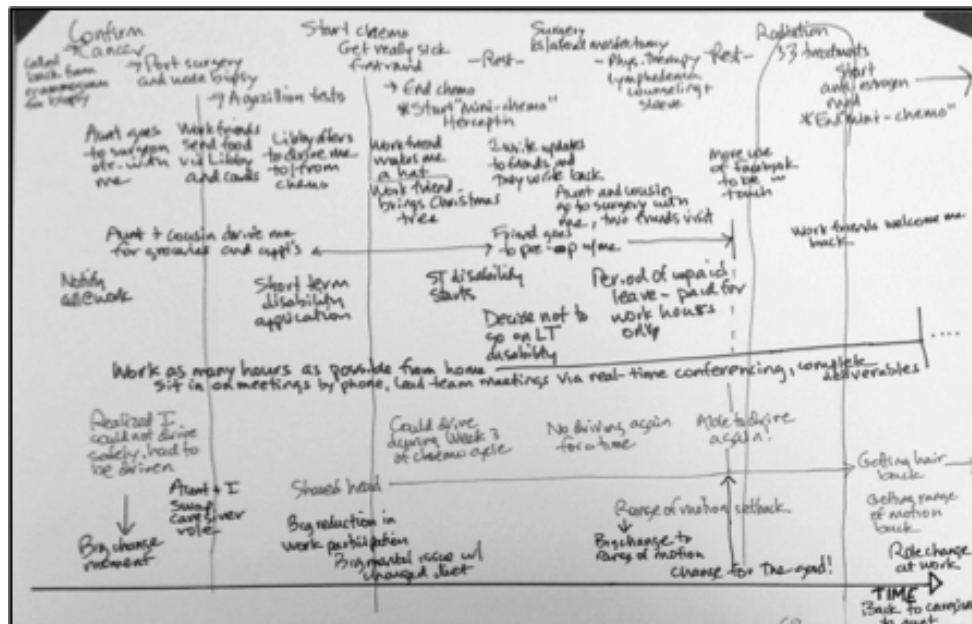 Confirm
Cancer
called
back from
mammogram
for biopsy
→ Port surgery
and node biopsy
→ A gazillion tests
Start chemo
Get really sick
first round
→ End chemo
*Start "mini-chemo"
Herceptin
-Rest-
Surgery
Bilateral mastectomy
-Phys. Therapy
Lymphedema
counseling +
sleeve
-Rest-
Radiation
33 treatments
Start
anti estrogen
med
*End "mini-chemo"
Aunt goes
to surgeon
with
me
Work friends
send food
via Libby
and cards
Libby offers
to drive me
to/from
chemo
Work friend
makes me
a hat
Work friend
brings Christmas
tree
I write updates
to friends and
they write back
Aunt and cousin
go to surgery with
me, two friends visit
More use
of facebook
to be in
touch
Work friends welcome me
back
Aunt + cousin drive me
for groceries and appt's
Friend goes
to pre-op w/me
Notify
@work
Short term
disability
application
ST disability
starts
Decide not to
go on LT
disability
Period of unpaid
leave - paid for
work hours
only
Work as many hours as possible from home
Sit in on meetings by phone, lead team meetings via real-time conferencing, complete
deliverables
....
Realized I
could not drive
safely, had to
be driven
Big change
moment
Aunt + I
swap
caregiver
role
Could drive
during Week 3
of chemo cycle
No driving again
for a time
Able to drive
again!
Shaved head
Big reduction in
work participation
Big mental issue w/
changed diet
Range of motion setback
Big change to
range of motion
Change for the good!
Getting hair
back
Getting range
of motion
back
Role change
at work
TIME
Back to caregiver
to aunt